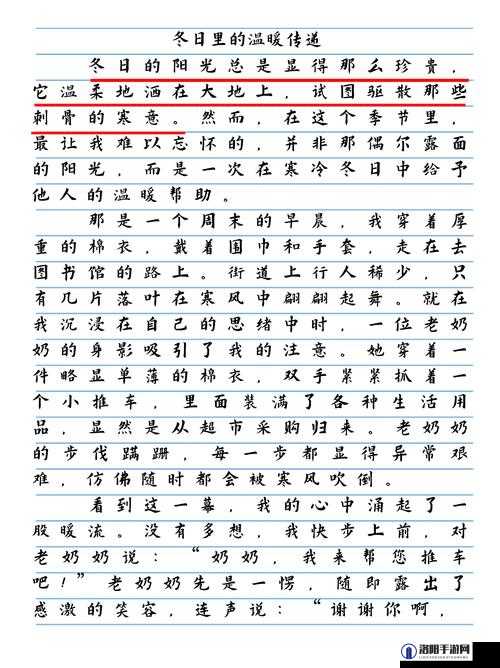 冬日里的温暖传递
冬日的阳光总是显得那么珍贵，
它温柔地洒在大地上，试图驱散那些
刺骨的寒意。然而，在这个季节里，
最让我难以忘怀的，并非那偶尔露面
的阳光，而是一次在寒冷冬日中给予
他人的温暖帮助。
那是一个周末的早晨，我穿着厚
重的棉衣，戴着围巾和手套，走在去
图书馆的路上。街道上行人稀少，只
有几片落叶在寒风中翩翩起舞。就在
我沉浸在自己的思绪中时，一位老奶
奶的身影吸引了我的注意。她穿着一
件略显单薄的棉衣，双手紧紧抓着一
个小推车，里面装满了各种生活用
品，显然是从超市采购归来。老奶奶
的步伐蹒跚，每一步都显得异常艰
难，仿佛随时都会被寒风吹倒。
看到这一幕，我的心中涌起了一
股暖流。没有多想，我快步上前，对
老奶奶说：“奶奶，我来帮您推车
吧！”老奶奶先是一愣，随即露出了
感激的笑容，连声说：“谢谢你啊，
洛阳手游网